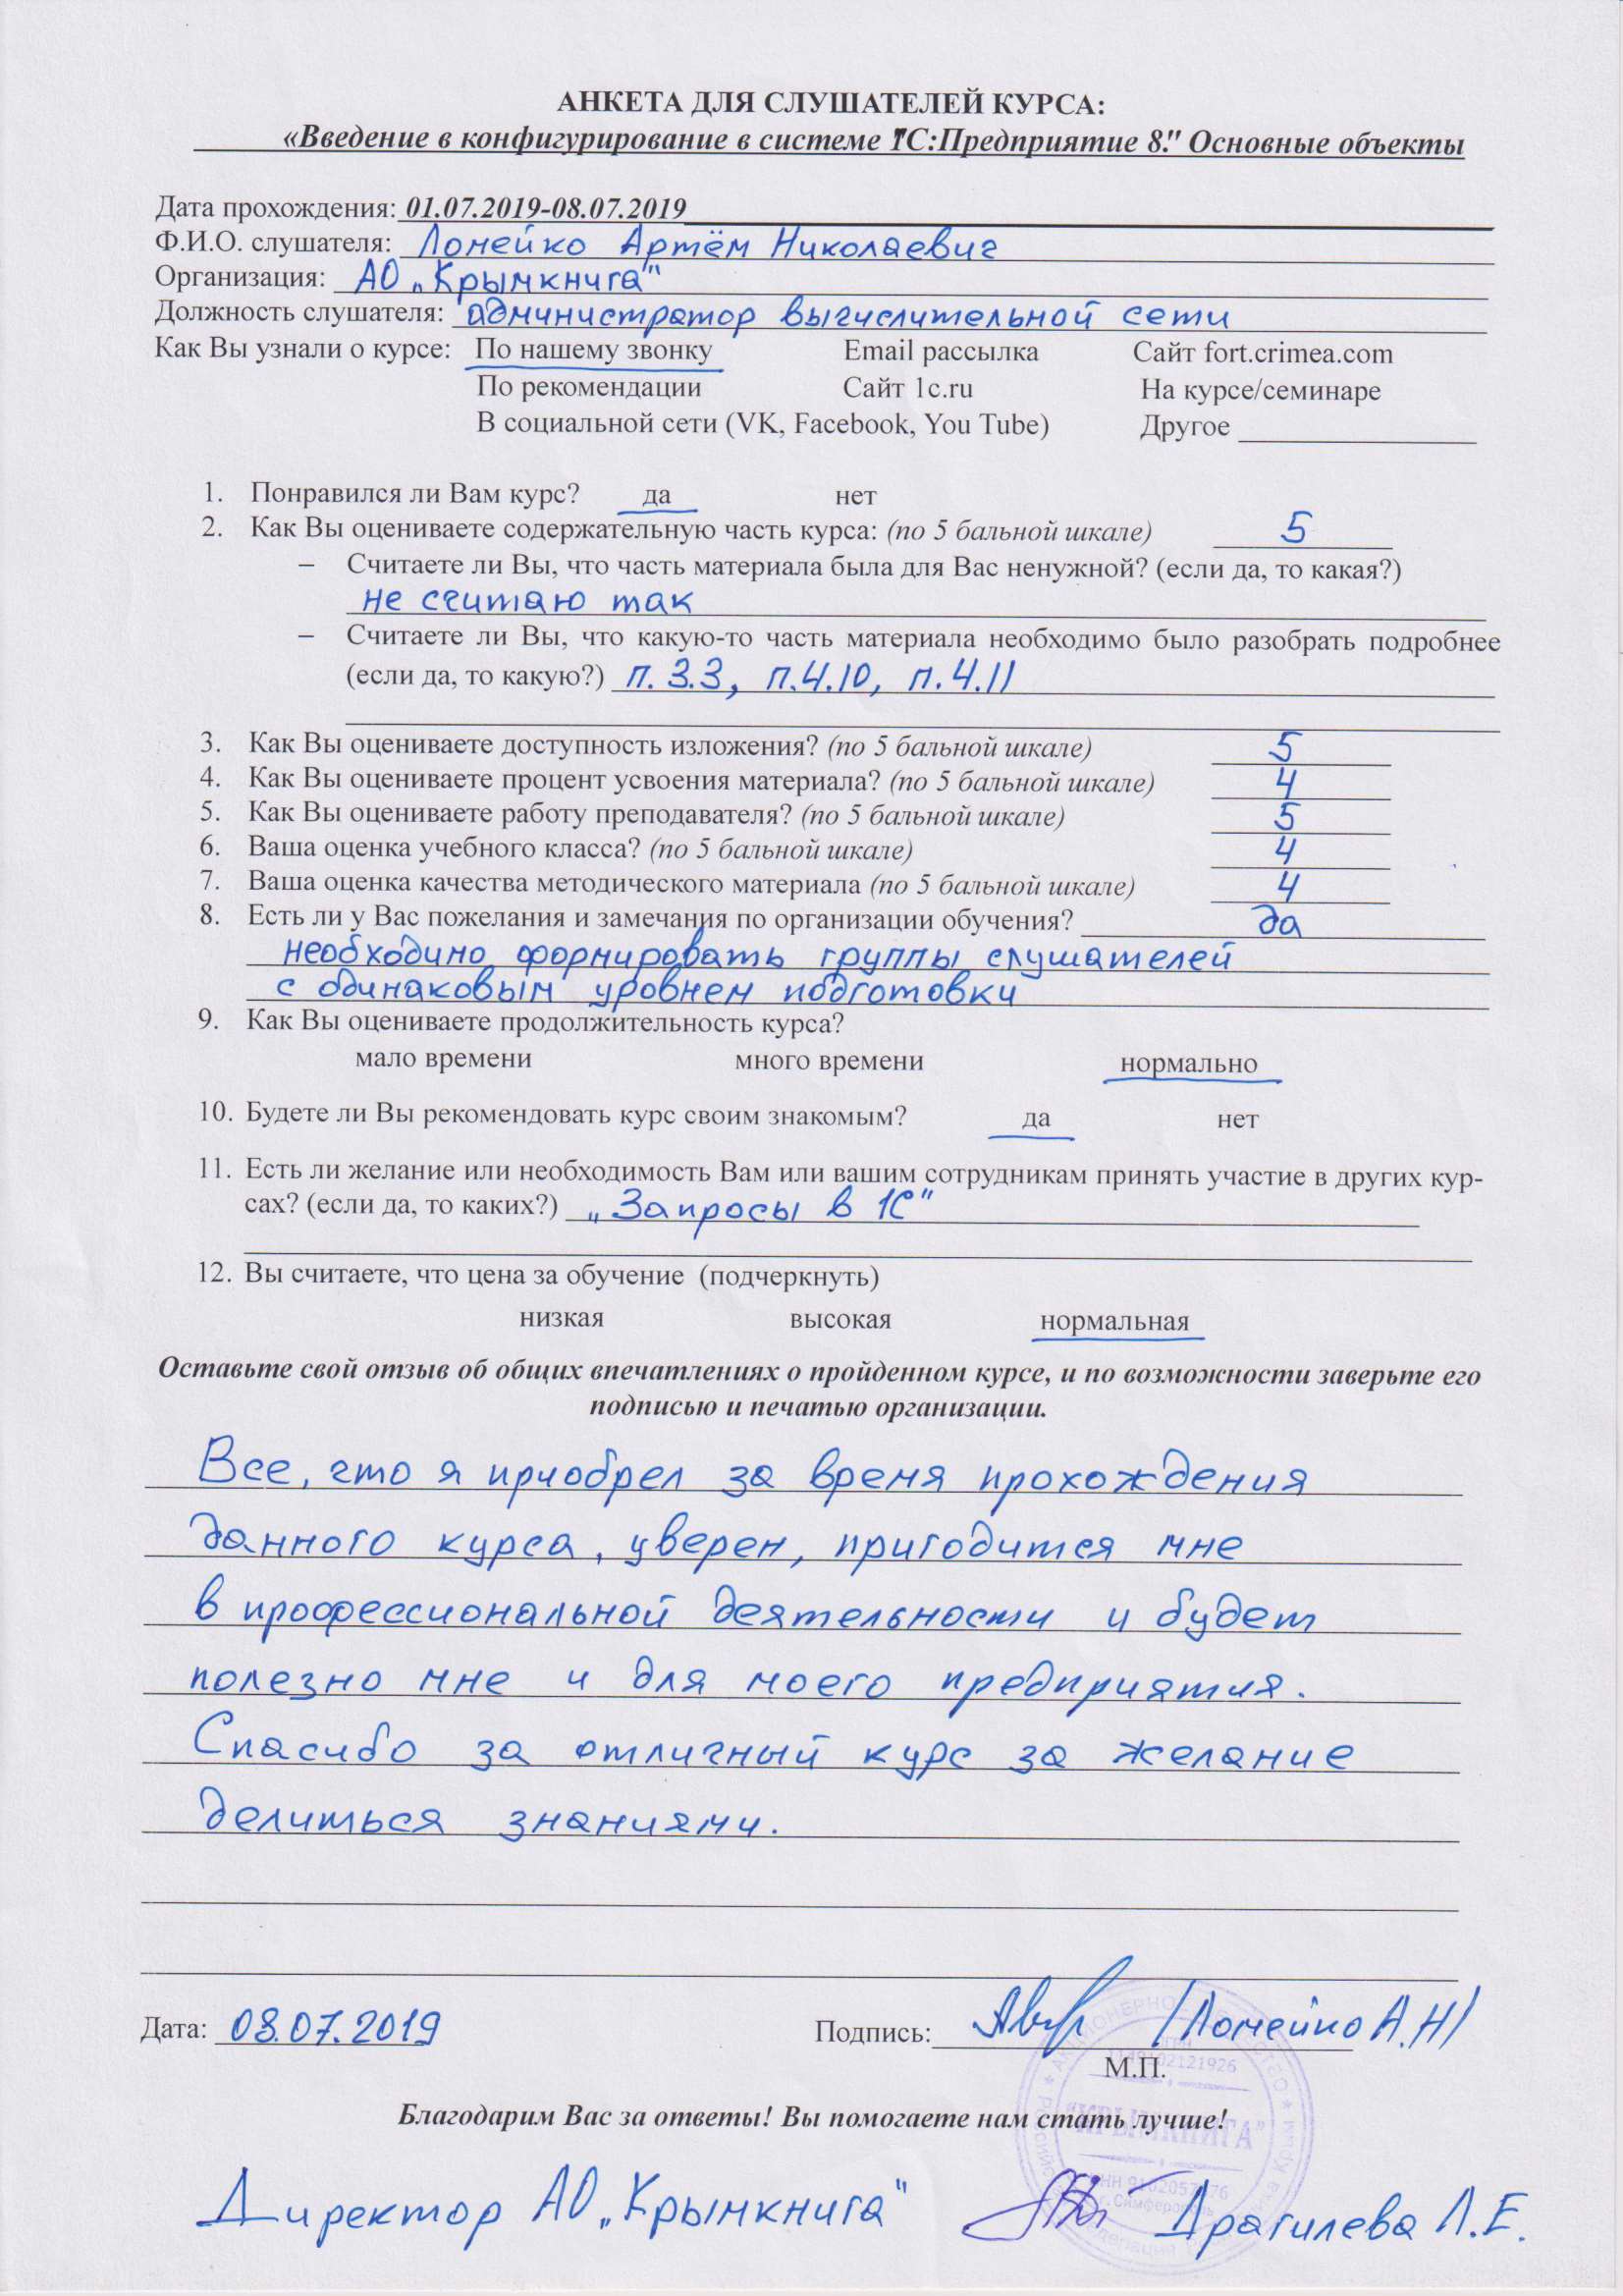 АНКЕТА ДЛЯ СЛУШАТЕЛЕЙ КУРСА:
«Введение в конфигурирование в системе "1С:Предприятие 8." Основные объекты
Дата прохождения: 01.07.2019-08.07.2019
Ф.И.О. слушателя: Ломейко Артём Николаевич
Организация: АО „Крымкнига"
Должность слушателя: администратор вычислительной сети
Как Вы узнали о курсе: По нашему звонку Email рассылка Сайт fort.crimea.com
По рекомендации Сайт 1c.ru На курсе/семинаре
В социальной сети (VK, Facebook, You Tube) Другое
1. Понравился ли Вам курс? да нет
2. Как Вы оцениваете содержательную часть курса: (по 5 бальной шкале) 5
– Считаете ли Вы, что часть материала была для Вас ненужной? (если да, то какая?)
не считаю так
– Считаете ли Вы, что какую-то часть материала необходимо было разобрать подробнее
(если да, то какую?) п. 3.3, п.4.10, п.4.11
3. Как Вы оцениваете доступность изложения? (по 5 бальной шкале) 5
4. Как Вы оцениваете процент усвоения материала? (по 5 бальной шкале) 4
5. Как Вы оцениваете работу преподавателя? (по 5 бальной шкале) 5
6. Ваша оценка учебного класса? (по 5 бальной шкале) 4
7. Ваша оценка качества методического материала (по 5 бальной шкале) 4
8. Есть ли у Вас пожелания и замечания по организации обучения? да
необходимо формировать группы слушателей
с одинаковым уровнем подготовки
9. Как Вы оцениваете продолжительность курса?
мало времени много времени нормально
10. Будете ли Вы рекомендовать курс своим знакомым? да нет
11. Есть ли желание или необходимость Вам или вашим сотрудникам принять участие в других кур-
сах? (если да, то каких?) „Запросы в 1С"
12. Вы считаете, что цена за обучение (подчеркнуть)
низкая высокая нормальная
Оставьте свой отзыв об общих впечатлениях о пройденном курсе, и по возможности заверьте его
подписью и печатью организации.
Все, что я приобрел за время прохождения
данного курса, уверен, пригодится мне
в профессиональной деятельности и будет
полезно мне и для моего предприятия.
Спасибо за отличный курс за желание
делиться знаниями.
Дата: 08.07.2019 Подпись: /Ломейко А.Н/
М.П.
Благодарим Вас за ответы! Вы помогаете нам стать лучше!
"КРЫМКНИГА"
Директор АО „Крымкнига" Драгилева Л.Е.